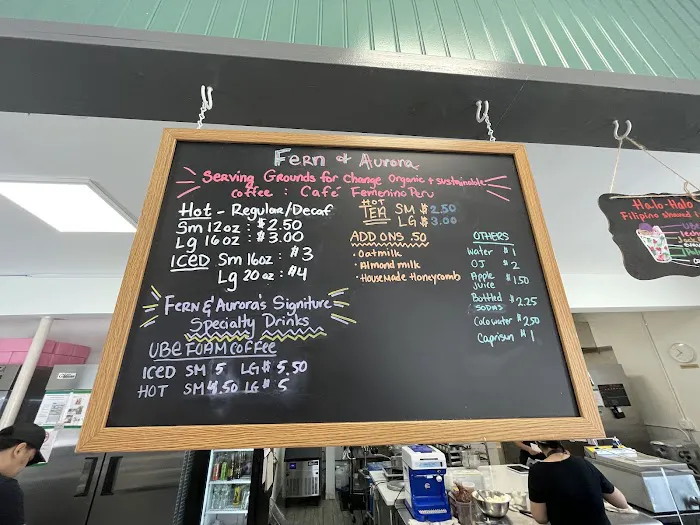 Fern & Aurora
Serving Grounds for Change Organic + sustainable
coffee : Café Femenino Peru
Hot - Regular/Decaf
Sm 12oz : $2.50
Lg 16oz : $3.00
ICED Sm 16oz : $3
Lg 20oz : $4
HOT
TEA SM $2.50
LG $3.00
ADD ONS .50
• Oatmilk
• Almond milk
• Housemade Honeycomb
OTHERS
Water $1
OJ $2
Apple Juice $1.50
Bottled SODAS $2.25
Coco water $2.50
Caprisun $1
Fern & Aurora's Signiture
Specialty Drinks
UBE FOAM COFFEE
ICED SM 5 LG $5.50
HOT SM 4.50 LG $5
Halo-Halo
Filipino shaved